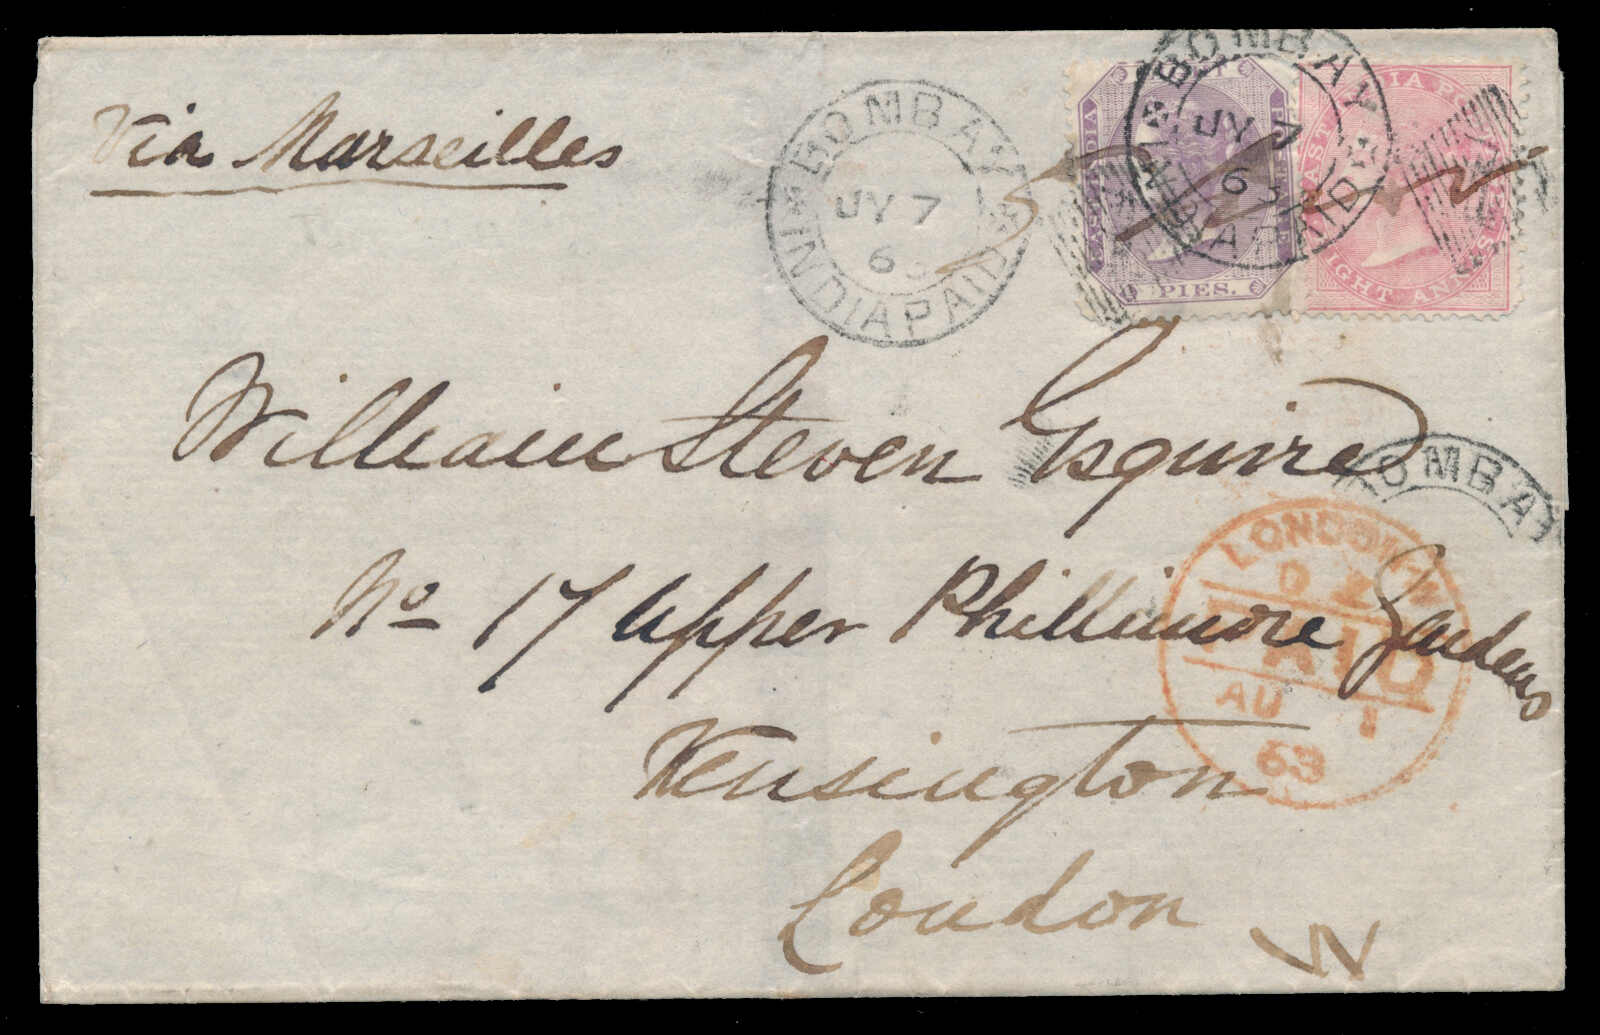 Via Marseilles
BOMBAY
JY 7
63
INDIA PAID
BOMBAY
JY 7
63
INDIA PAID
EAST INDIA
PIES.
EAST INDIA PO
EIGHT ANNAS
William Steven Esquire
BOMBAY
No 17 Upper Phillimore Gardens
LONDON-W
PAID
AU 1
63
Kensington
London
W